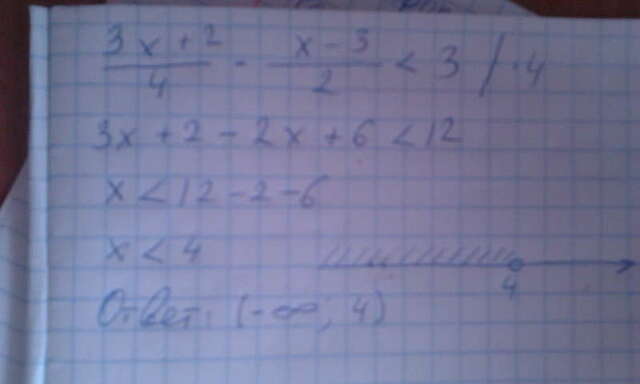 (3x+2)/4 - (x-3)/2 < 3 / ·4
3x+2-2x+6<12
x<12-2-6
x<4
4
Ответ: (-∞; 4)